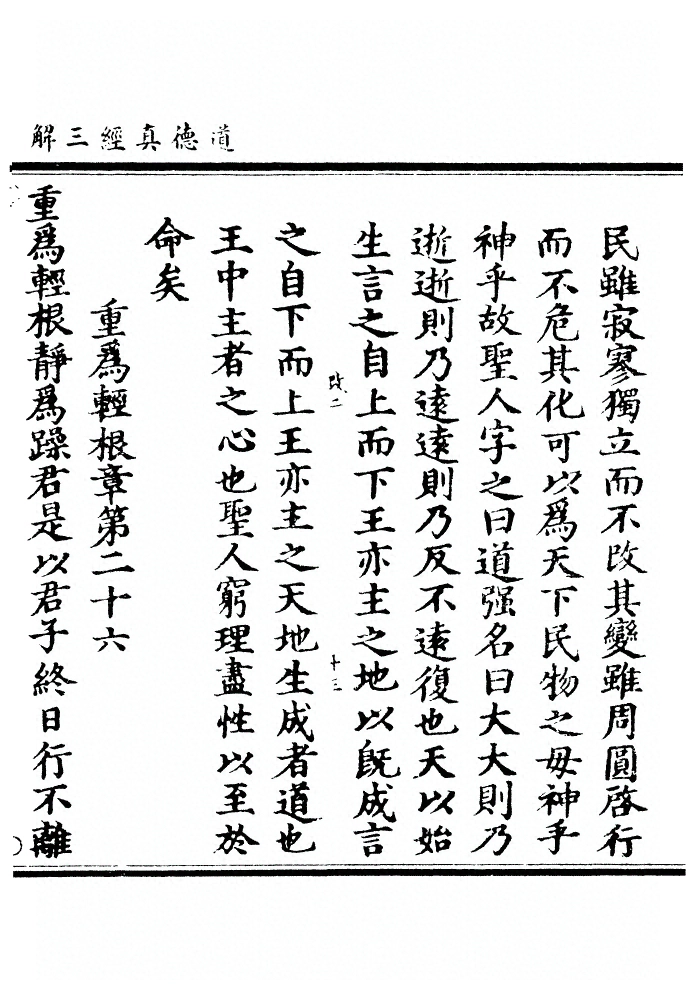 道德真經三解
民雖寂寥獨立而不改其變雖周圓啓行
而不危其化可以為天下民物之母神乎
神乎故聖人字之曰道强名曰大大則乃
逝逝則乃遠遠則乃反不遠復也天以始
生言之自上而下王亦主之地以旣成言
改二
十三
之自下而上王亦主之天地生成者道也
王中主者之心也聖人窮理盡性以至於
命矣
重為輕根章第二十六
重為輕根靜為躁君是以君子終日行不離